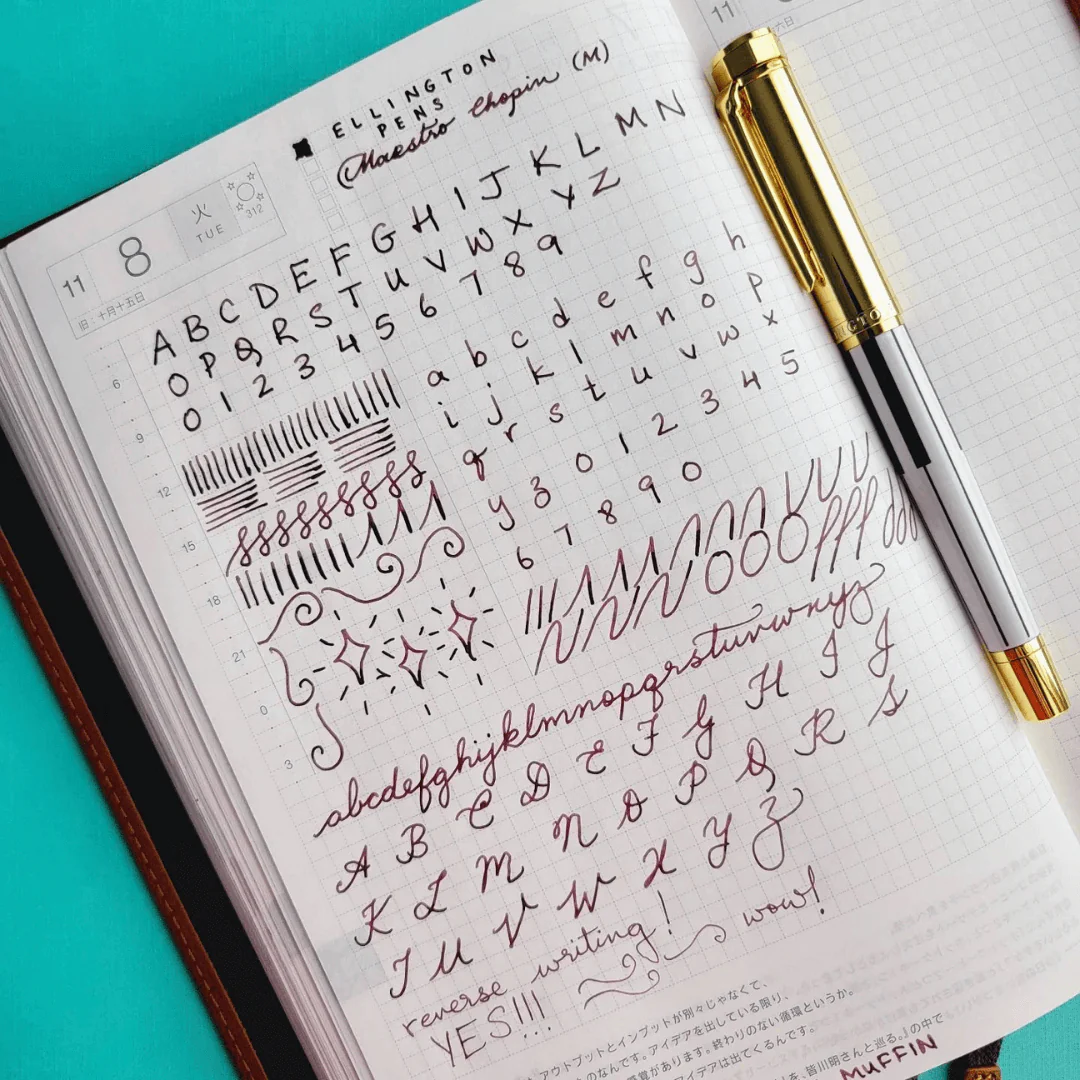 ELLINGTON
PENS
Maestro Chopin (M)
11
8
火
TUE
312
旧:十月十五日
11
A B C D E F G H I J K L M N
O P Q R S T U V W X Y Z
0 1 2 3 4 5 6 7 8 9
6
9
12
15
18
21
0
3
a b c d e f g h
i j k l m n o p
q r s t u v w x
y z 0 1 2 3 4 5
6 7 8 9 0
abcdefghijklmnopqrstuvwxyz
A B C D E F G H I J
K L M N O P Q R S
T U V W X Y Z
reverse writing! wow!
YES!!!
アウトプットとインプットが別々じゃなくて、
のなんです。アイデアを出している限り、
があります。終わりのない循環というか。
アイデアは出てくるんです。
を、皆川明さんと巡る。』の中で
MUFFIN